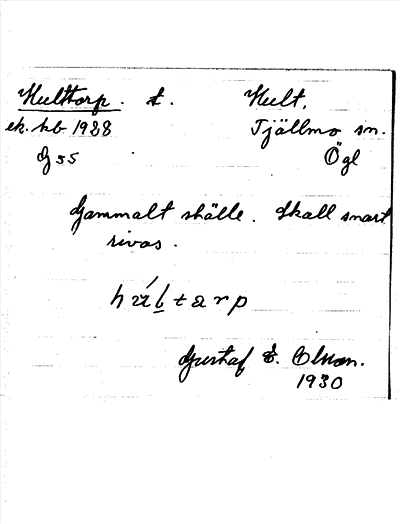 Hulttorp. t. Hult,
ek. kb 1928 Tjällmo sn.
G 55 Ögl
Gammalt ställe. Skall snart
rivas.
Gustaf E. Olsson.
1930